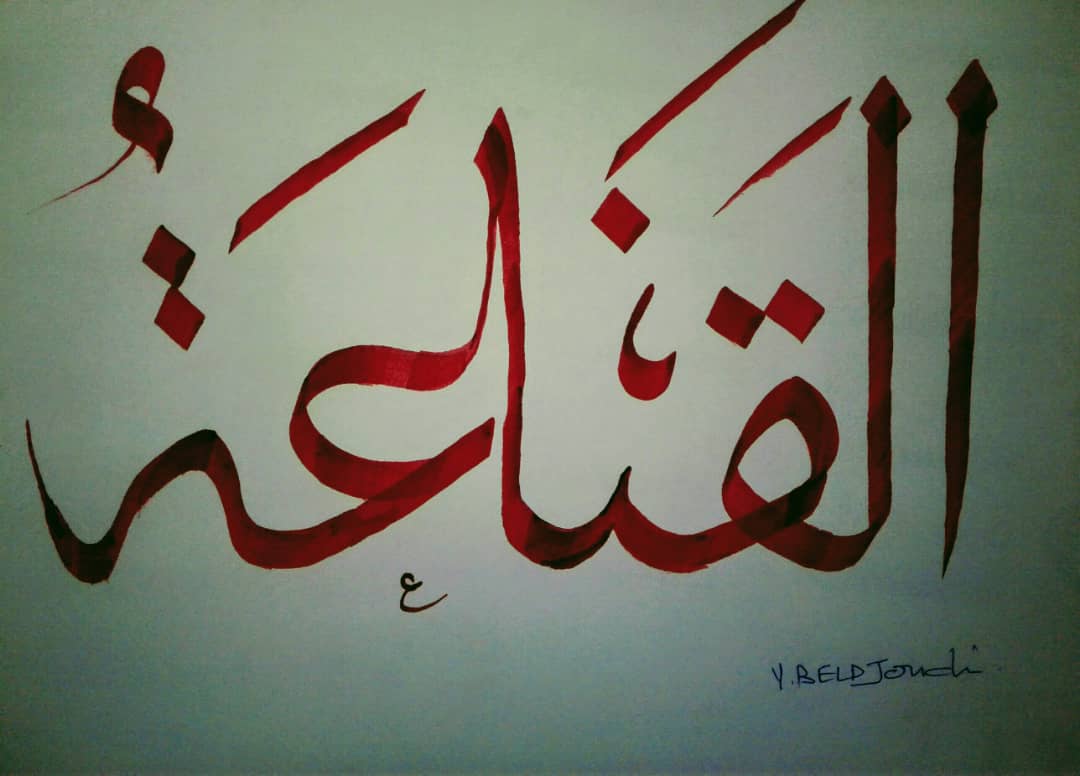 القَنَاعَةُ
ع
Y. BELDJoudi